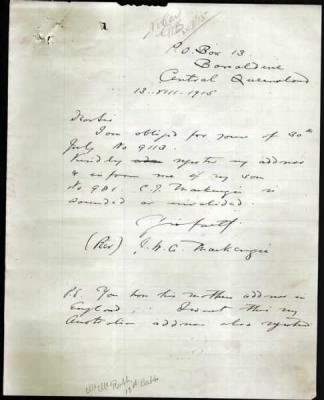 P.O. Box 13.
Barcaldine
Central Queensland
13-VIII-1915
Dear Sir
I am obliged for yours of 30th
July No 9113.
Kindly register my address
& inform me if my son
No 981. C.J. Mackenzie is
wounded or invalided.
Yrs faithf.
(Rev) Mackenzie
P.S. You have his mothers address in
England. I want this my
Australian address also registered